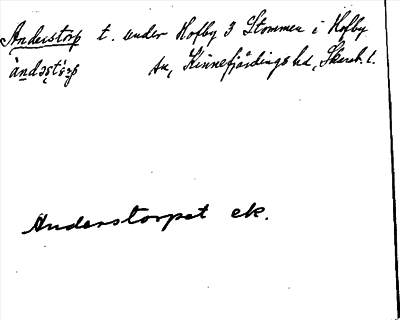 Anderstorp t. under Hofby 3 Stommen i Hofby
sn, Kinnefjärdings hd, Skarab. l.
Anderstorpet ek.